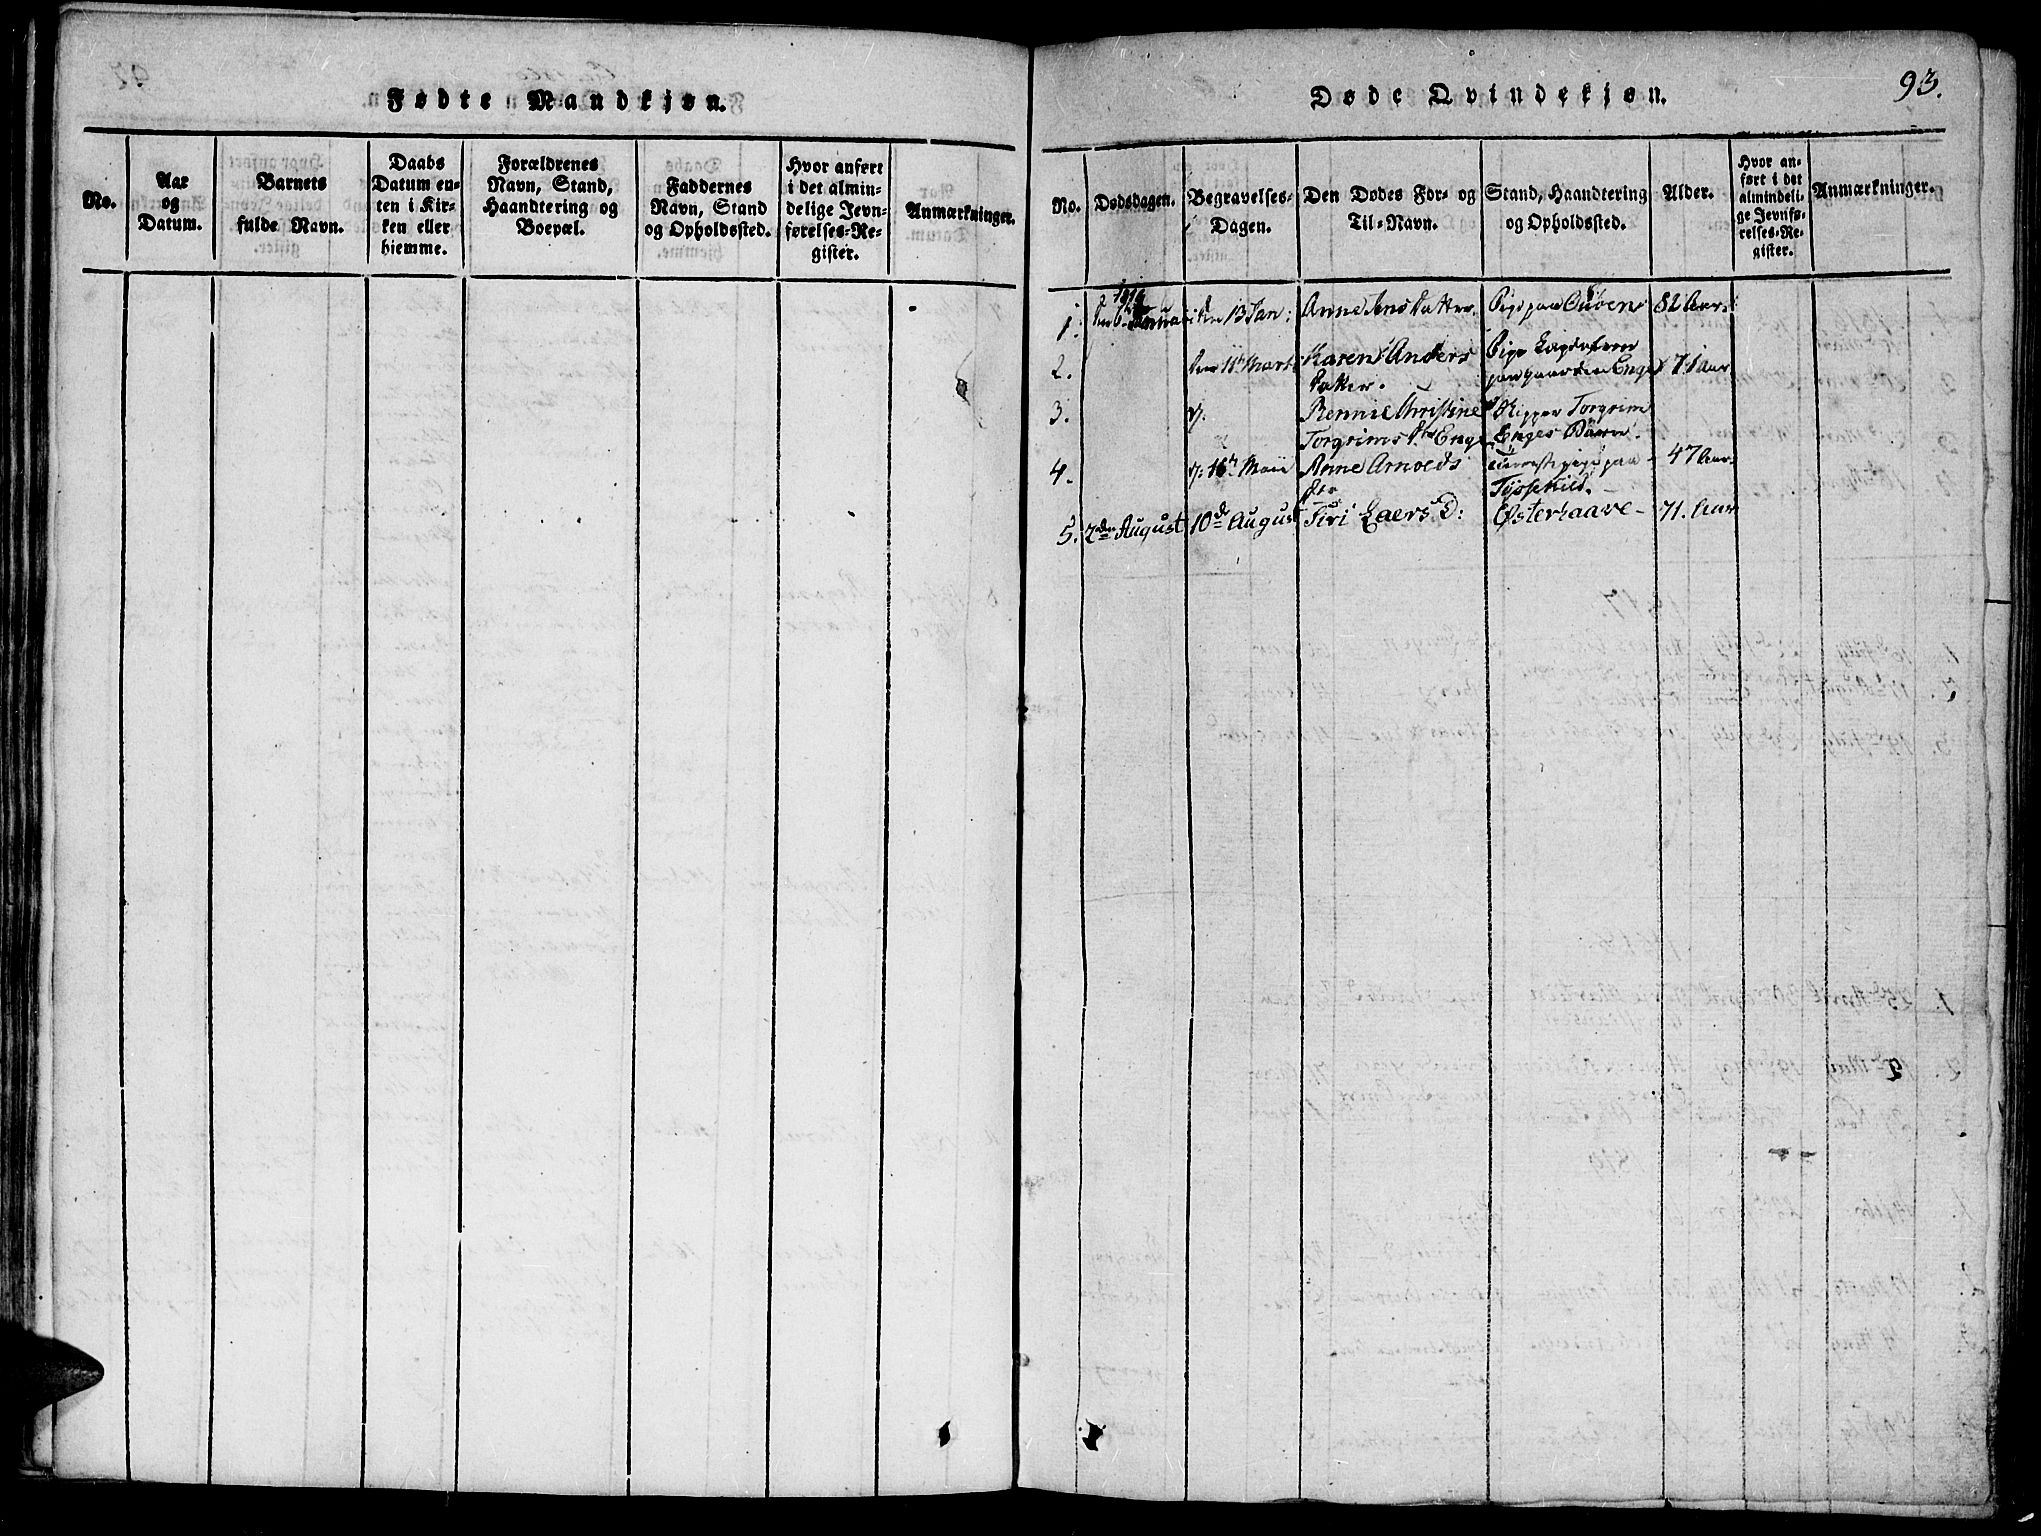 Fødte Mandkjøn.
No.
Aar
og
Datum.
Barnets
fulde Navn.
Daabs
Datum en-
ten i Kir-
ken eller
hiemme.
Forældrenes
Navn, Stand,
Haandtering og
Boepæl.
Faddernes
Navn, Stand
og Opholdssted.
Hvor anført
i det almin-
delige Jevn-
førelses-Re-
gister.
Anmærkninger.
93.
Døde Qvindekjøn.
No.
Dødsdagen.
Begravelses-
Dagen.
Den Dødes For- og
Til-Navn.
Stand, Haandtering
og Opholdssted.
Alder.
Hvor an-
ført i det
almindeli-
ge Jevnfø-
relses-Re-
gister.
Anmærkninger.
1. 13 Jan: Anne Jens Datter. Pige paa 82 Aar.
2. den 11te Marts Karen Anders Pige
Datter. 71 Aar
3. Christine Skipper Torgrim
Torgrims Dtr Enge Enges Barn.
4. 16de Maii Anne Arnolds 47 Aar.
Dtr
5. 2den August 10de August Siri Laers D: Østeraave - 71. Aar